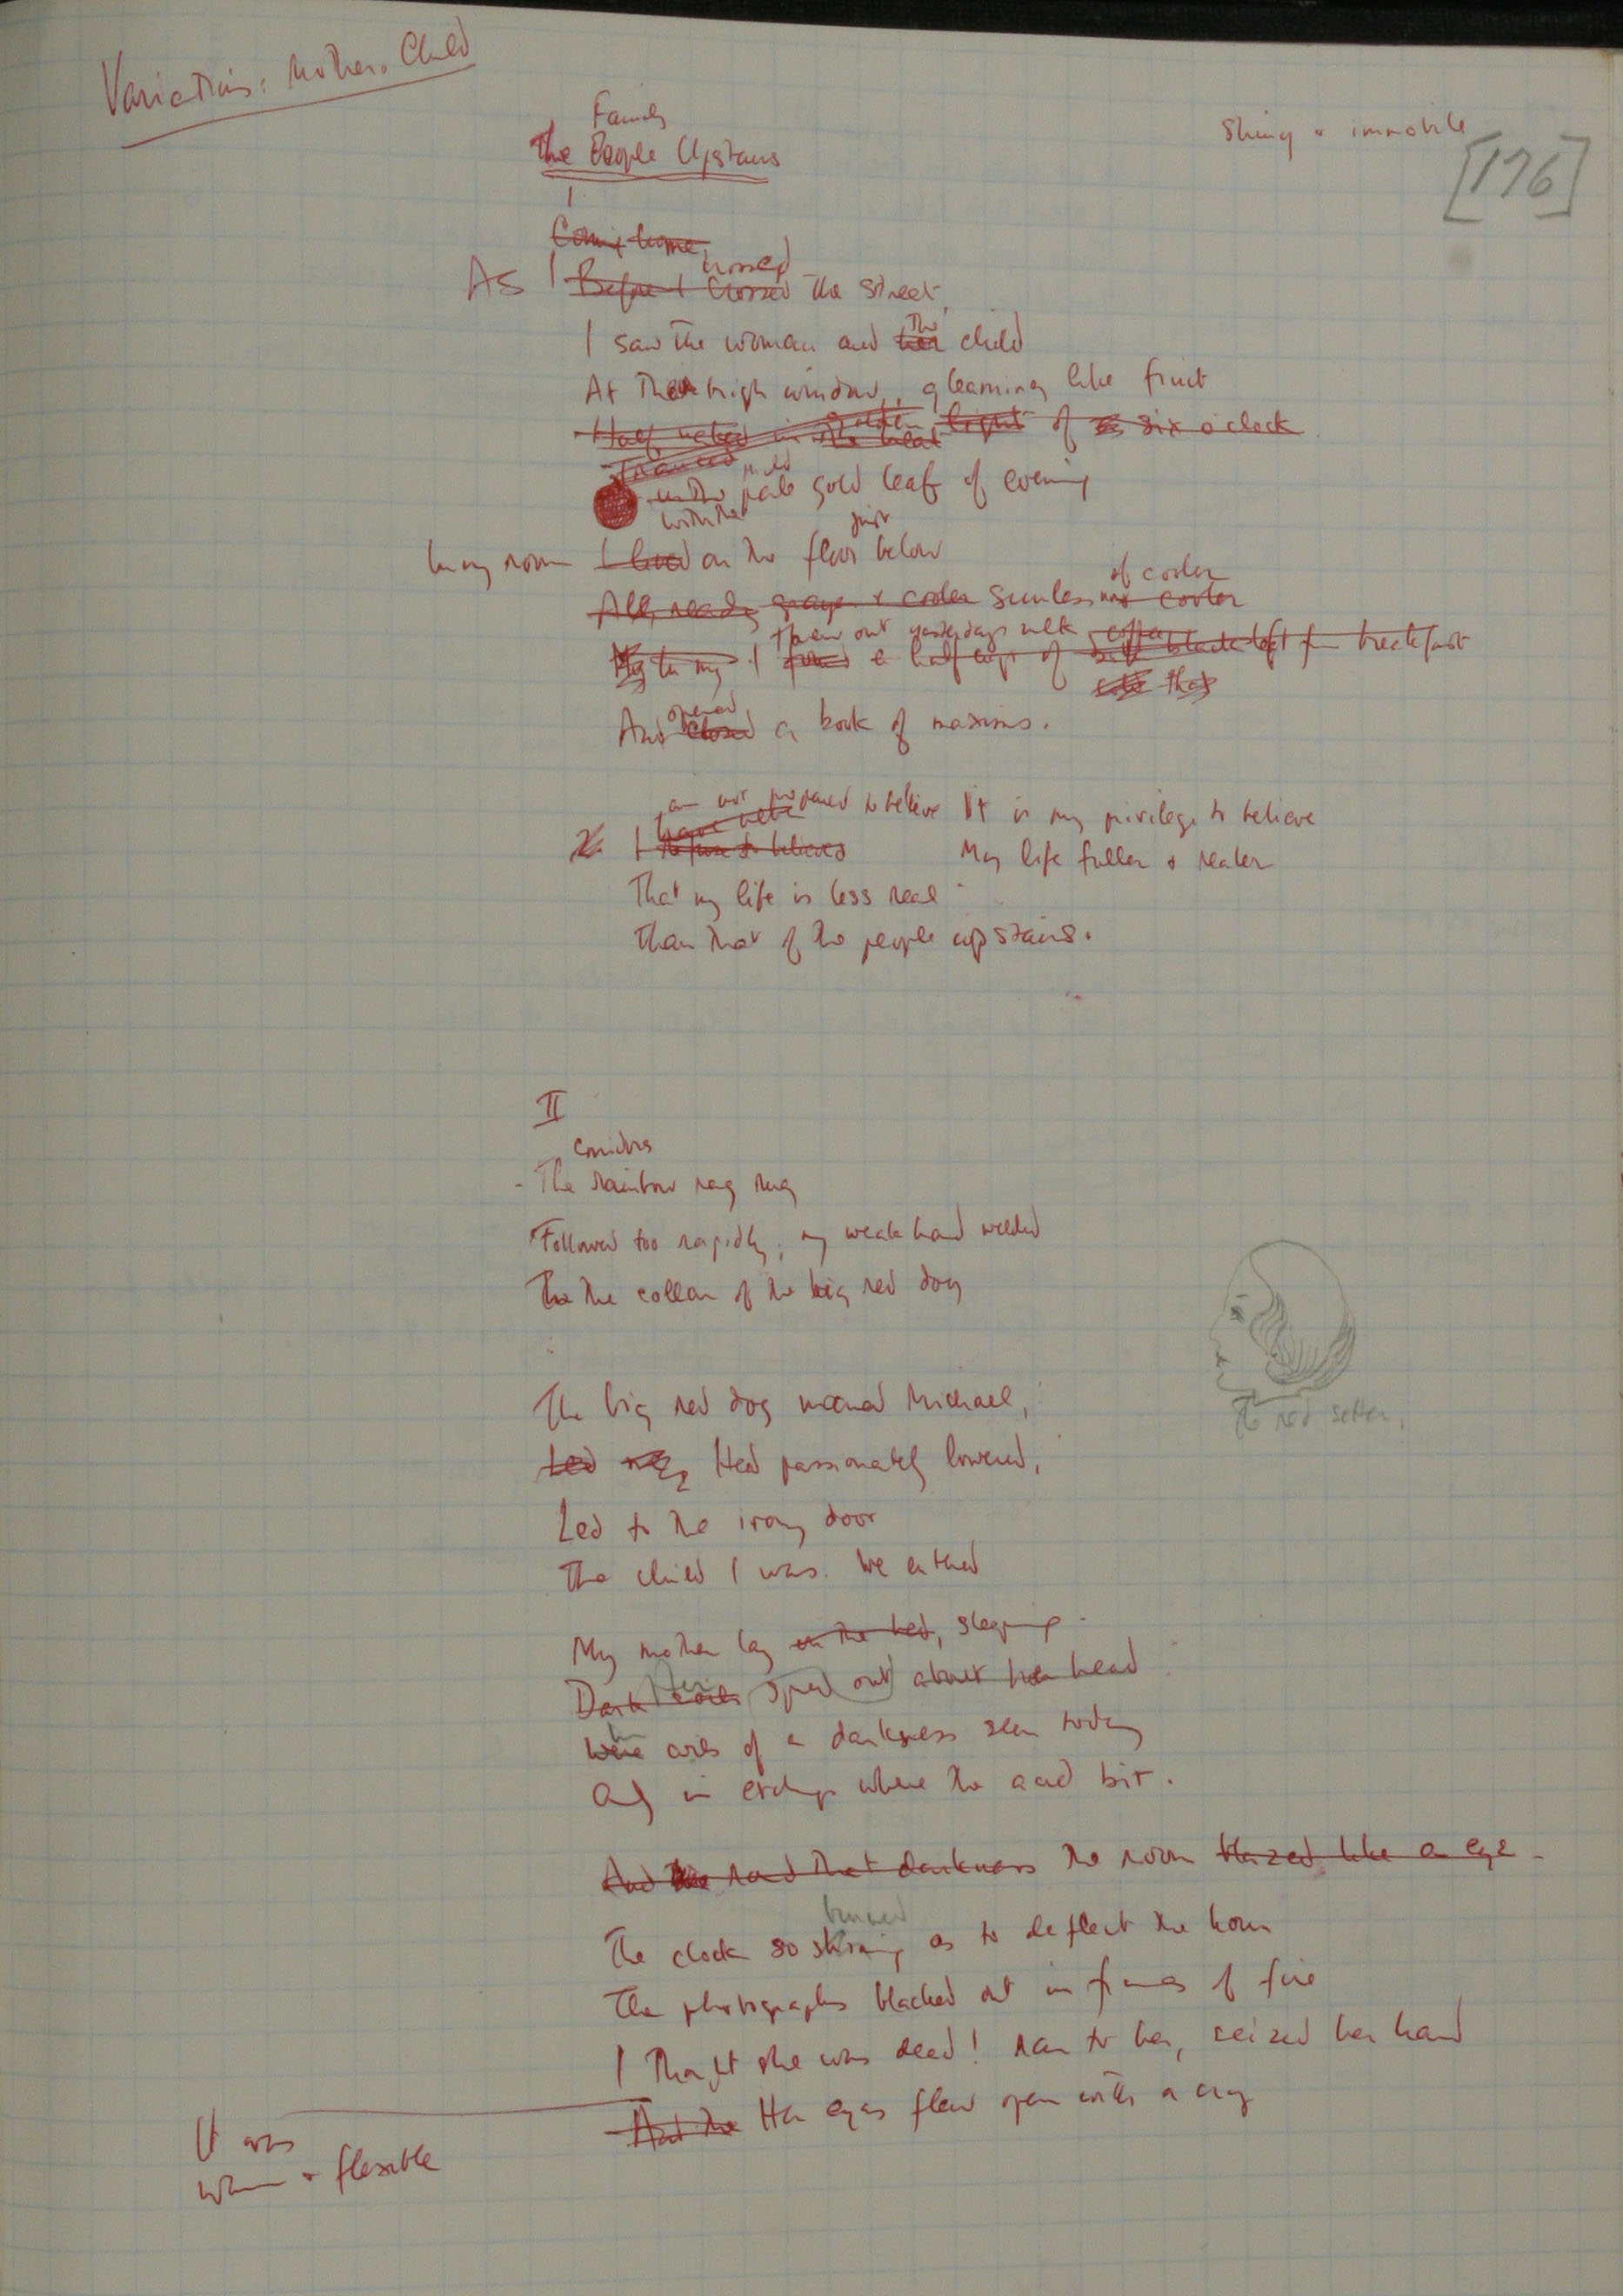 Variations: Mother & Child
Shiny & immobile
[176]
Family
The People Upstairs
I
Coming home,
crossed
As I Before I crossed the street,
I saw the woman and her the child
At their high window, gleaming like fruit
Half naked in the heat golden light of six o'clock
Tranced
in the pale gold leaf of evening
with the
just
In my room I lived on the floor below
of cooler
All ready grayer & cooler sunless cooler
threw out yesterday's milk coffee
I found a half cup of black left from breakfast
opened
And closed a book of maxims.
am not prepared to believe It is my privilege to believe
I refuse to believe My life fuller & realer
That my life is less real
Than that of the people upstairs.
II
corridors
The rainbow rag rug
Followed too rapidly; my weak hand welded
To the collar of the big red dog
The big red dog named Michael,
Led me, Head passionately lowered,
Led to the irony door
The child I was. We entered
The red setter.
My mother lay on the bed, sleeping.
Dark coils Her spread out about her head
Were coils of a darkness seen today
Only in etchings where the acid bit.
And that darkness the room blazed like an eye.
burned
The clock so shining as to deflect the hour
The photographs blacked out in frames of fire
I thought she was dead! ran to her, seized her hand
And the Her eyes flew open with a cry
It was
warm & flexible